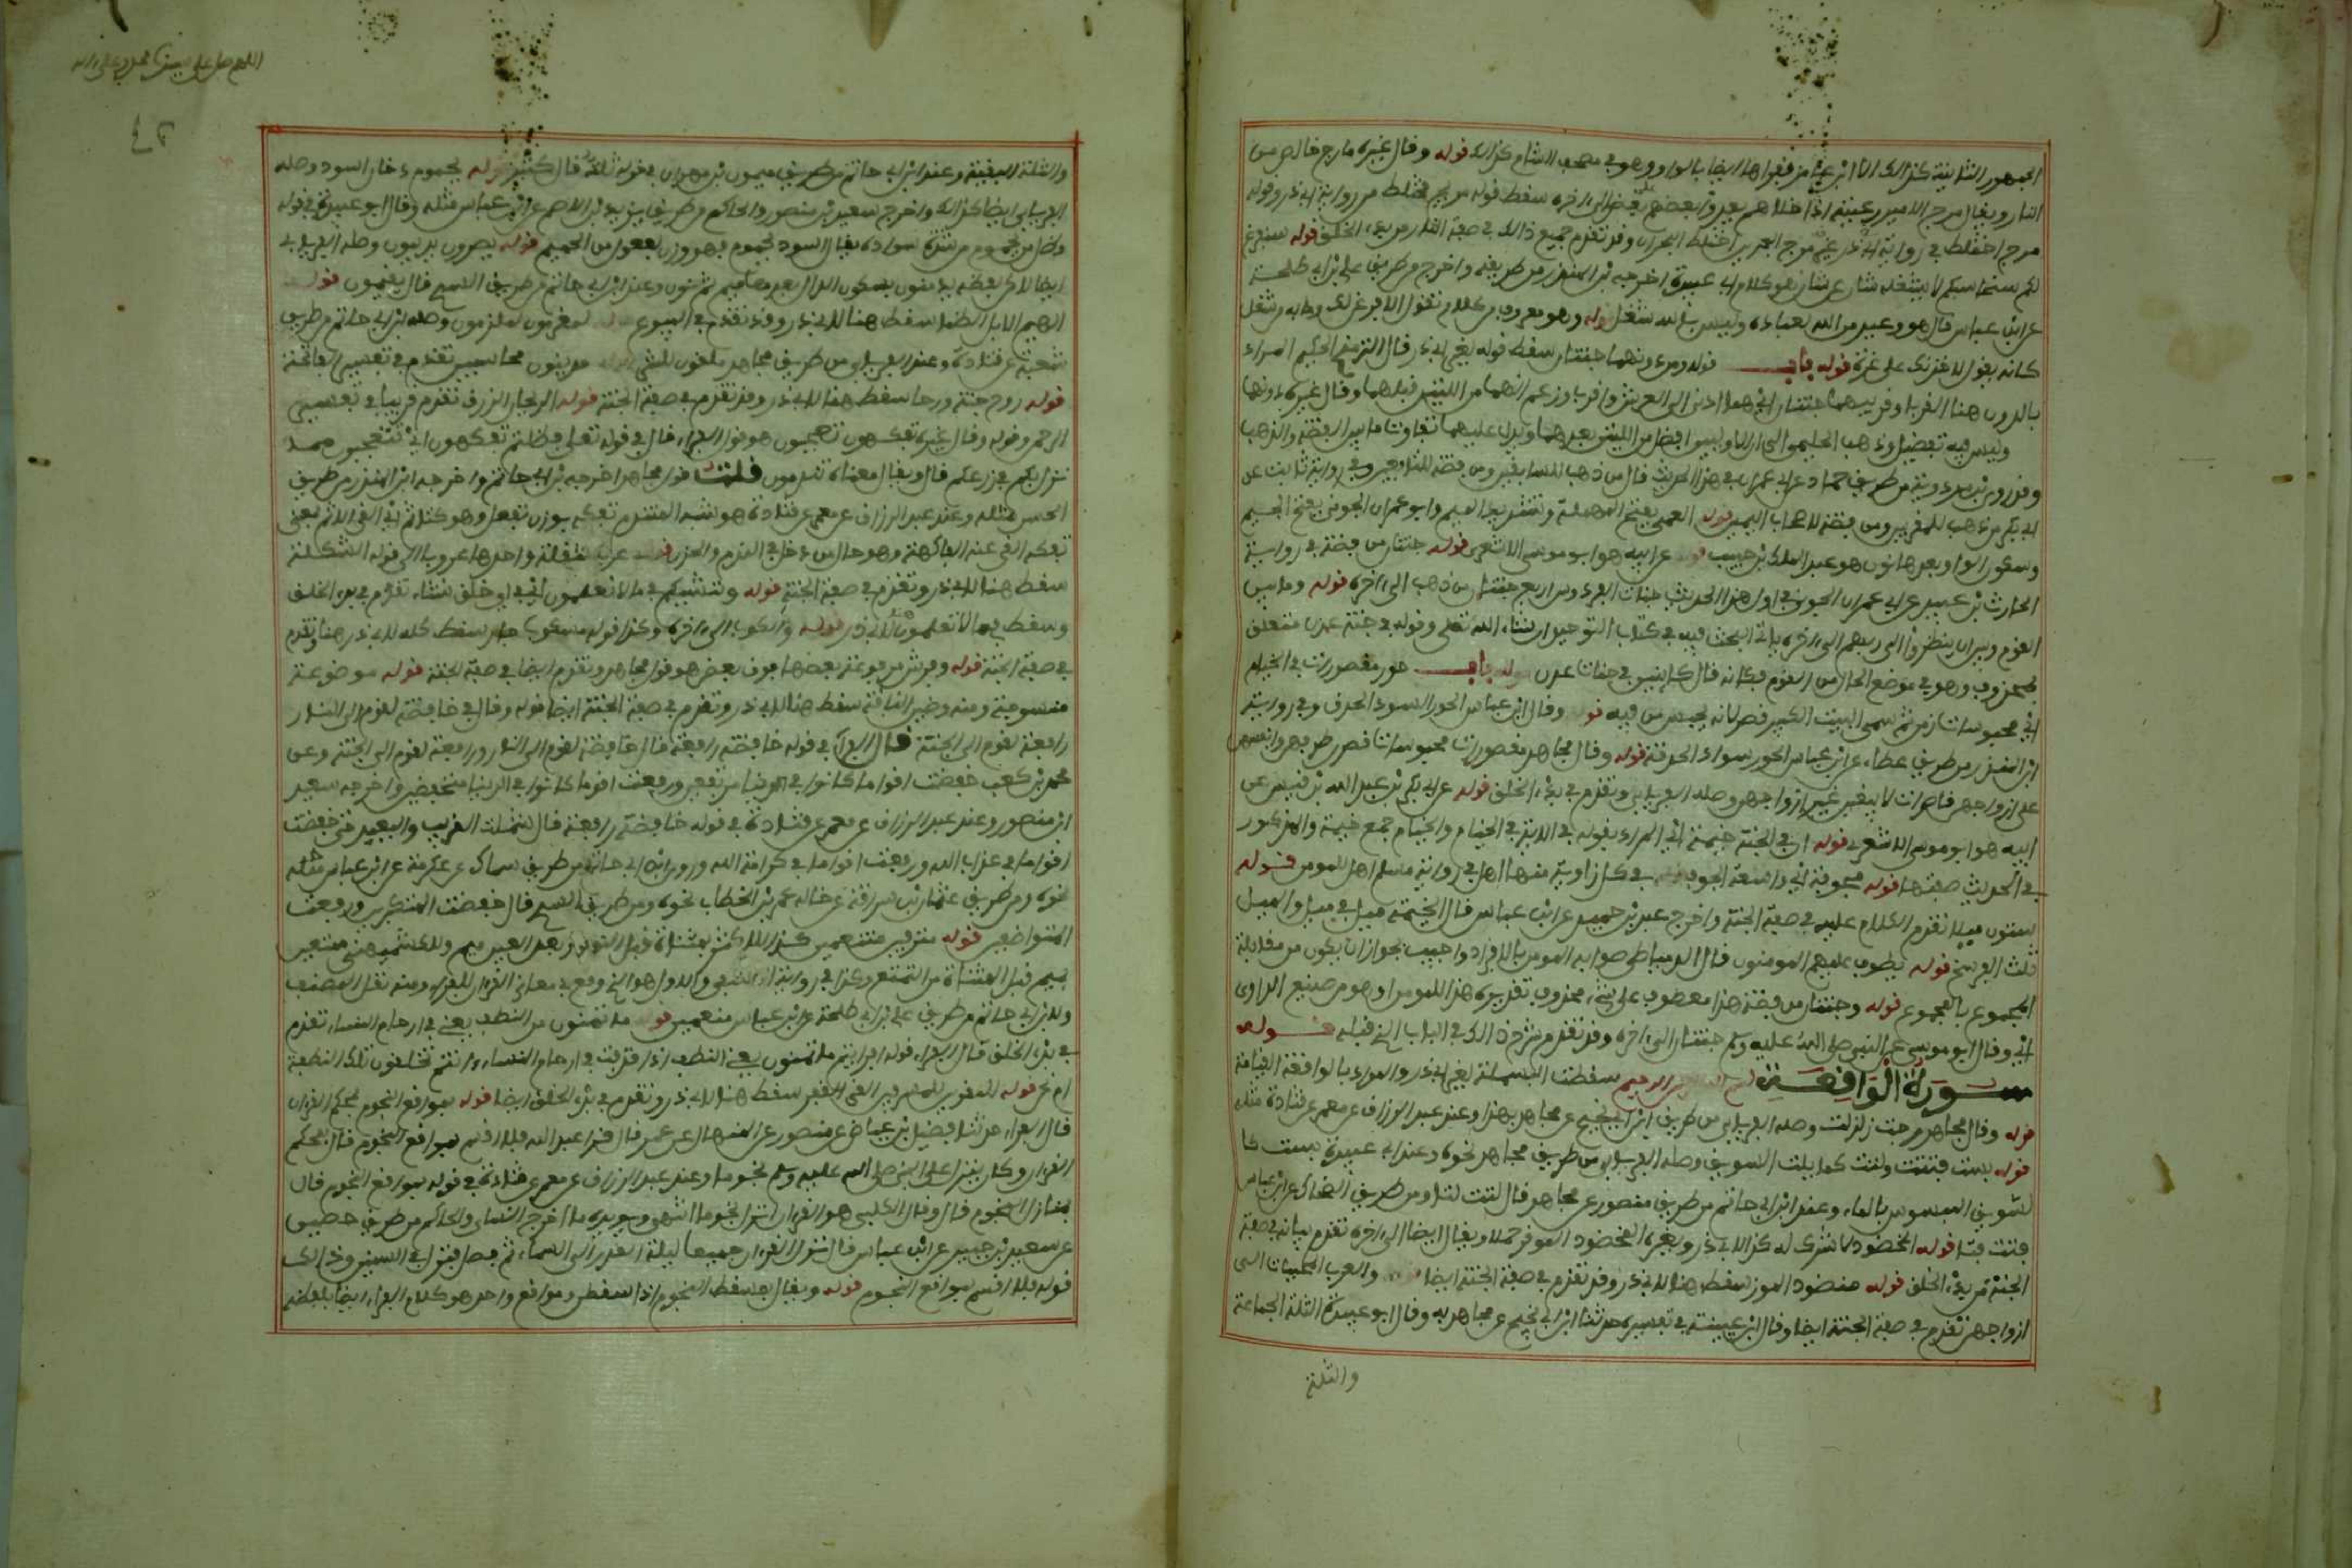 الجمهور الثانية كذلك الا ابن عامر فقرأها ايضا بالواو وهي في مصحف الشام كذلك قوله وقال غيره مارج خالص من
النار ويقال مرج الامير رعيته اذا خلاهم يعدو بعضهم على بعض الى اخره سقط قوله مريج مختلط من رواية ابي ذر وقوله
مرج اختلط في رواية ابي ذر مرج البحرين اختلط البحران وقد تقدم جميع ذلك في صفة النار من بدء الخلق قوله سنفرغ
لكم سنحاسبكم لا يشغله شان عن شان هو كلام ابي عبيدة اخرجه ابن المنذر من طريقه واخرج من طريق علي بن ابي طلحة
عن ابن عباس قال هو وعيد من الله لعباده وليس بالله شغل قوله وهو معروف في كلام العرب يقال لاتفرغن لك وما به شغل
كانه يقول لاخذنك على غرة قوله باب قوله ومن دونهما جنتان سقط قوله لغير ابي ذر قال الترمذي الحكيم المراد
بالدون هنا القرب اي وقربهما جنتان اي هما ادنى الى العرش واقرب وزعم انهما افضل من اللتين قبلهما وقال غيره معنى دونهما
وليس فيه تفضيل وذهب الحليمي الى ان الاوليين افضل من اللتين بعدهما ويدل عليهما تفاوت ما بين الفضة والذهب
وقد روى ابن مردويه من طريق حماد عن ابي عمران في هذا الحديث قال من ذهب للسابقين ومن فضة للتابعين وفي رواية ثابت عن
ابي بكر من ذهب للمقربين ومن فضة لاصحاب اليمين قوله العمي بفتح المهملة وتشديد الميم وابو عمران الجوني بفتح الجيم
وسكون الواو بعدها نون هو عبد الملك بن حبيب قوله عن ابيه هو ابو موسى الاشعري قوله جنتان من فضة في رواية
الحارث بن عبيد عن ابي عمران الجوني في اول هذا الحديث جنات الفردوس اربع جنتان من ذهب الى اخره قوله وما بين
القوم وبين ان ينظروا الى ربهم الى اخره ياتي البحث فيه في كتاب التوحيد ان شاء الله تعلى وقوله في جنة عدن متعلق
بمحذوف وهو في موضع الحال من القوم فكانه قال كائنين في جنات عدن قوله باب حور مقصورات في الخيام
اي محبوسات ومن ثم سمى البيت الكبير قصرا لانه يحبس من فيه قوله وقال ابن عباس الحور السود الحدق وفي رواية
ابن المنذر من طريق عطاء عن ابن عباس الحور سواد الحدقة قوله وقال مجاهد مقصورات محبوسات قصر طرفهن وانفسهن
على ازواجهن قاصرات لا يبغين غير ازواجهن وصله الفريابي وتقدم في بدء الخلق قوله عن ابي بكر بن عبد الله بن قيس عن
ابيه هو ابو موسى الاشعري قوله ان في الجنة خيمة اي المراد بقوله في الاية في الخيام والخيام جمع خيمة والمذكور
في الحديث صفتها قوله مجوفة اي واسعة الجوف قوله في كل زاوية منها اهل في رواية مسلم اهل للمومن قوله
ستون ميلا تقدم الكلام عليه في صفة الجنة واخرج عبد بن حميد عن ابن عباس قال الخيمة ميل في ميل والميل
ثلث الفرسخ قوله يطوف عليهم المومنون قال الدمياطي صوابه المومن بالافراد واجيب بجواز ان يكون من مقابلة
المجموع بالمجموع قوله وجنتان من فضة هذا معطوف على شيء محذوف تقديره هذا للمومن او هو من صنيع الراوي
اي وقال ابو موسى عن النبي صلى الله عليه وسلم جنتان الى اخره وقد تقدم شرح ذلك في الباب الذي قبله قوله
سورة الواقعة بسم الله الرحمن الرحيم سقطت البسملة لغير ابي ذر والمراد بالواقعة القيامة
قوله وقال مجاهد رجت زلزلت وصله الفريابي من طريق ابن ابي نجيح عن مجاهد بهذا وعند عبد الرزاق عن معمر عن قتادة مثله
قوله بست فتتت ولتت كما يلت السويق وصله الفريابي من طريق مجاهد نحوه وعند ابي عبيدة بست كا
لسويق المبسوس بالماء وعند ابن ابي حاتم من طريق منصور عن مجاهد قال لتت لتا ومن طريق الضحاك عن ابن عباس
فتتت فتا قوله المخضود لا شوك له كذا لابي ذر ولغيره المخضود الموقر حملا ويقال ايضا الى اخره تقدم بيانه في صفة
الجنة من بدء الخلق قوله منضود الموز سقط هنا لابي ذر وقد تقدم في صفة الجنة ايضا قوله والعرب المحببات الى
ازواجهن تقدم في صفة الجنة ايضا وقال ابن عيينة في تفسيره حدثنا ابن ابي نجيح عن مجاهد به وقال ابو عبيدة الثلة الجماعة
والثلة
اللهم صل على سيدنا محمد وعلى اله
٤٢
والثلة البقية وعند ابن ابي حاتم من طريق ميمون بن مهران في قوله ثلة قال كثير قوله يحموم دخان اسود وصله
الفريابي ايضا كذلك واخرج سعيد بن منصور والحاكم من طريق يزيد بن الاصم عن ابن عباس مثله وقال ابو عبيدة في قوله
وظل من يحموم من شدة سواده يقال اسود يحموم فهو وزن يفعول من الحميم قوله يصرون يديمون وصله الفريابي
ايضا لكن لفظه يدمنون بسكون الدال بعدها ميم ثم نون وعند ابن ابي حاتم من طريق السدي قال يقيمون قوله
الهيم الابل الظماء سقط هنا لابي ذر وقد تقدم في البيوع قوله لمغرمون لملزمون وصله ابن ابي حاتم من طريق
شعبة عن قتادة وعند الفريابي من طريق مجاهد ملقون للشر قوله مدينين محاسبين تقدم في تفسير الفاتحة
قوله روح جنة ورخاء سقط هنا لابي ذر وقد تقدم في صفة الجنة قوله الريحان الرزق تقدم قريبا في تفسير
الرحمن وقوله وقال غيره تفكهون تعجبون هو قول الفراء قال في قوله تعلى فظلتم تفكهون اي تتعجبون مما
نزل بكم في زرعكم قال ويقال معناه تندمون قلت قول مجاهد اخرجه ابن ابي حاتم واخرجه ابن المنذر من طريق
الحسن مثله وعند عبد الرزاق عن معمر عن قتادة هو شبه المتندم تفكه بوزن تفعل وهو كتاثم اي القى الاثم فمعنى
تفكه القى عنه الفاكهة وهو حال من دخل في الندم والحزن قوله عربا مثقلة واحدها عروب الى قوله الشكلة
سقط هنا لابي ذر وتقدم في صفة الجنة قوله وننشئكم فيما لا تعلمون اي في اي خلق نشاء تقدم في بدء الخلق
وسقط فيما لا تعلمون هنا لابي ذر قوله والكوب الى اخره وكذا قوله مسكوب جار سقط كله لابي ذر هنا وتقدم
في صفة الجنة قوله وفرش مرفوعة بعضها فوق بعض هو قول مجاهد وتقدم ايضا في صفة الجنة قوله موضونة
منسوجة ومنه وضين الناقة سقط هنا لابي ذر وتقدم في صفة الجنة ايضا قوله وقال في خافضة لقوم الى النار
رافعة لقوم الى الجنة قال الفراء في قوله خافضة رافعة قال خافضة لقوم الى النار ورافعة لقوم الى الجنة وعن
محمد بن كعب خفضت اقواما كانوا في الدنيا مرتفعين ورفعت اقواما كانوا في الدنيا منخفضين واخرجه سعيد
ابن منصور وعند عبد الرزاق عن معمر عن قتادة في قوله خافضة رافعة قال شملت القريب والبعيد حتى خفضت
اقواما في عذاب الله ورفعت اقواما في كرامة الله وروى ابن ابي حاتم من طريق سماك عن عكرمة عن ابن عباس مثله
نحوه ومن طريق عثمان بن سراقة عن خاله عمر بن الخطاب نحوه ومن طريق السدي قال خفضت المتكبرين ورفعت
المتواضعين قوله مترفين متنعمين كذا للاكثر بمثناة قبل النون وبعد العين ميم وللكشميهني متمتعين
بميم قبل المثناة من التمتع وكذا في رواية النسفي والاول هو الذي وقع في معاني القران للفراء ومنه نقل المصنف
ولابن ابي حاتم من طريق علي بن ابي طلحة عن ابن عباس منعمين قوله ما تمنون من النطف يعني في ارحام النساء تقدم
في بدء الخلق قال الفراء قوله افرايتم ما تمنون يعني النطف اذا قذفت في ارحام النساء ءانتم تخلقون تلك النطفة
ام نحن قوله للمقوين للمسافرين القي القفر سقط هنا لابي ذر وتقدم في بدء الخلق ايضا قوله بمواقع النجوم بمحكم القران
قال الفراء حدثنا فضيل بن عياض عن منصور عن المنهال بن عمرو قال قرا عبد الله فلا اقسم بمواقع النجوم قال بمحكم
القران وكان ينزل على النبي صلى الله عليه وسلم نجوما وعند عبد الرزاق عن معمر عن قتادة في قوله بمواقع النجوم قال
بمنازل النجوم قال وقال الكلبي هو القران انزل نجوما انتهى ويويده ما اخرج النسائي والحاكم من طريق حصين
عن سعيد بن جبير عن ابن عباس قال نزل القران جميعا ليلة القدر الى السماء ثم فصل فنزل في السنين وذلك
قوله فلا اقسم بمواقع النجوم قوله ويقال بمسقط النجوم اذا سقطن ومواقع وموقع واحد هو كلام الفراء ايضا بلفظه